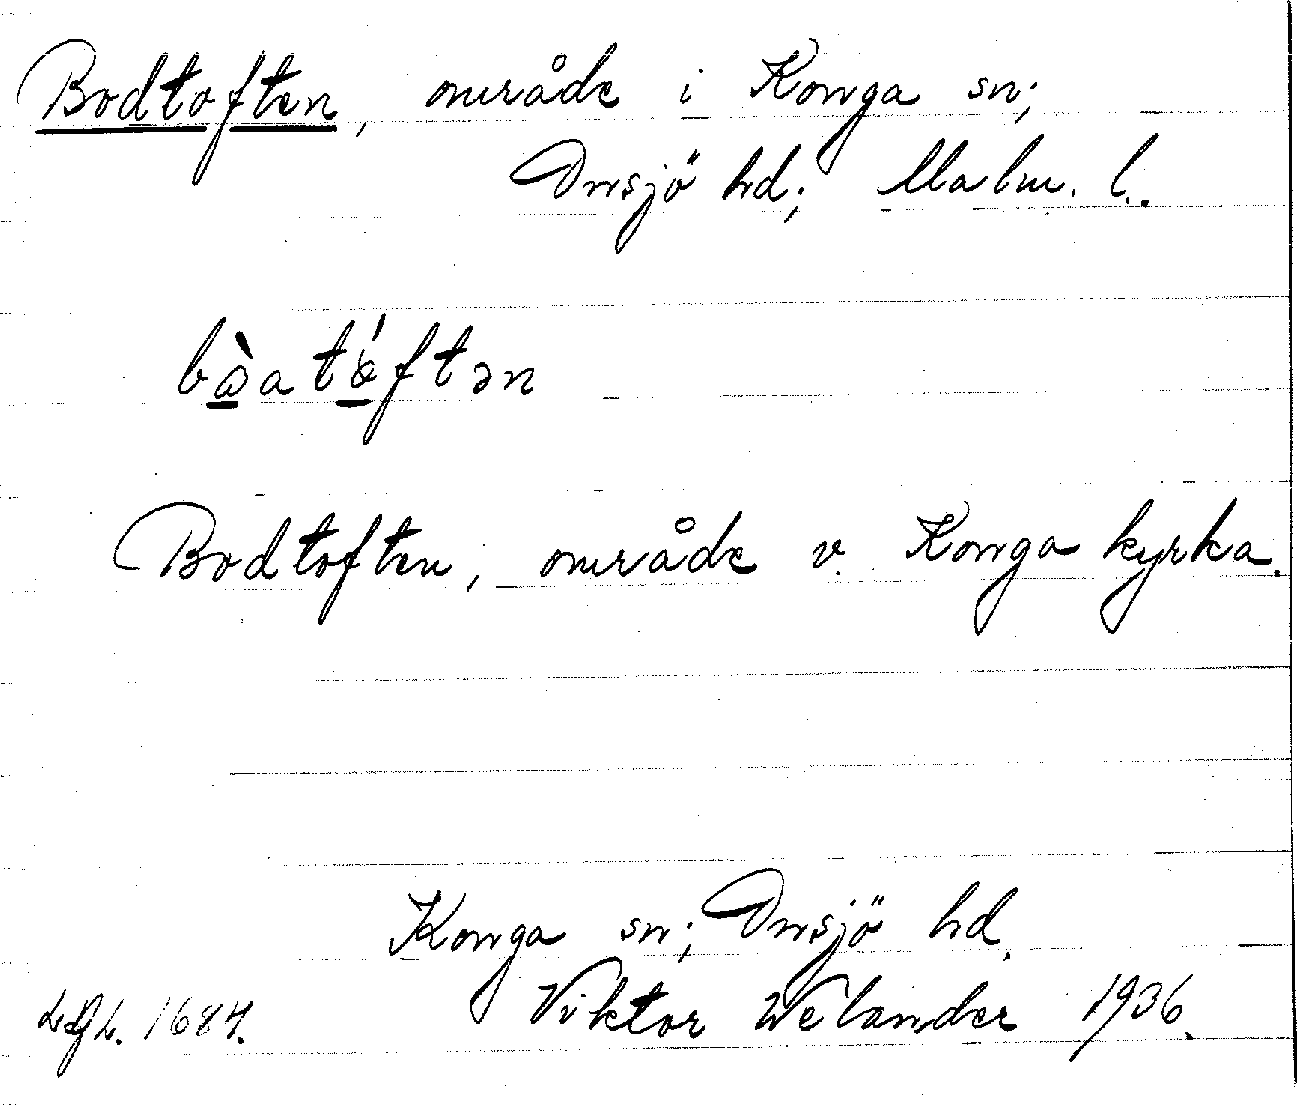 Bodtoften, område i Konga sn;
Onsjö hd; Malm. l.
bòatóftən
Bodtoften, område v. Konga kyrka.
Konga sn; Onsjö hd.
Viktor Welander 1936.
1684.